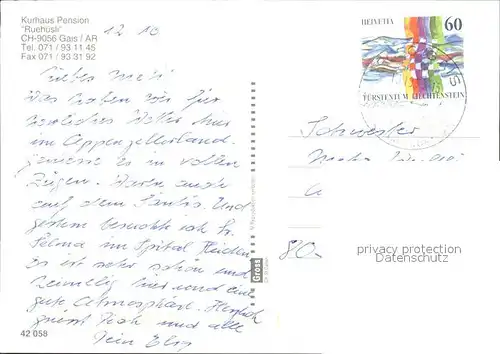 Kurhaus Pension
"Ruehüsli"
CH-9056 Gais / AR
Tel. 071 / 93 11 45
Fax 071 / 93 31 92
12 10
HELVETIA 60
FÜRSTENTUM LIECHTENSTEIN
Lieber
Was haben wir für
herrliches Wetter hier
im Appenzellerland.
geniesse es in vollen
Zügen. Waren auch
auf dem Säntis. Und
gestern besuchte ich Fr.
im Spital Heiden
Es ist sehr schön und
heimelig hier und eine
gute Atmosphäre. Herzlich
grüsst Dich und alle
Dein
Schwester
80.-
Gross
privacy protection
Datenschutz
42 058